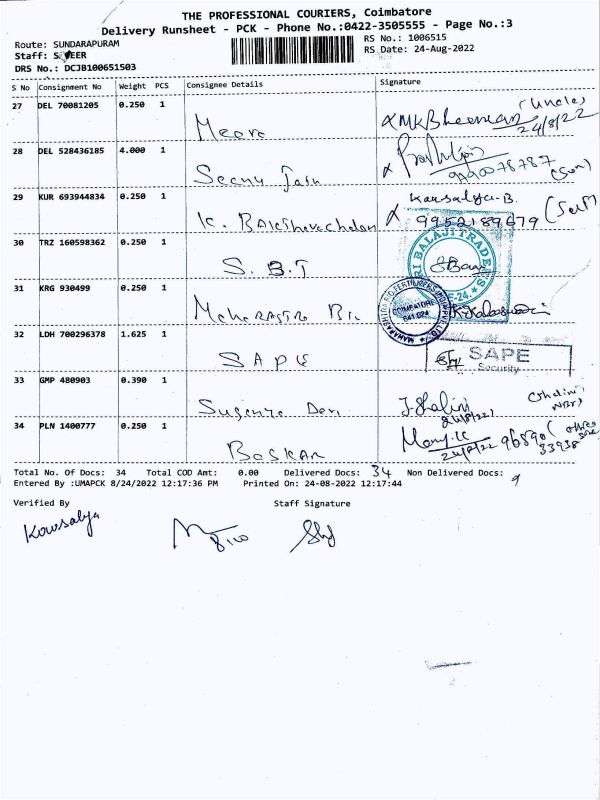 THE PROFESSIONAL COURIERS, Coimbatore
Delivery Runsheet - PCK - Phone No.:0422-3505555 - Page No.:3
Route: SUNDARAPURAM
RS No.: 1006515
Staff:
RS Date: 24-Aug-2022
DRS No.: DCJB100651503
S No Consignment No Weight PCS Consignee Details Signature
27 DEL 70081205 0.250 1
(Uncle)
24/8/22
28 DEL 528436185 4.000 1
9990078787 (Son)
29 KUR 693944834 0.250 1
Kowsalya.B.
9952189679 (Self)
30 TRZ 160598362 0.250 1
S. B.T
31 KRG 930499 0.250 1
COIMBATORE
641 024
32 LDH 700296378 1.625 1
SAPE
Security
33 GMP 480903 0.390 1
Devi
J. Shalini
24/8/22
34 PLN 1400777 0.250 1
Baskar
24/8/22
33938
Total No. Of Docs: 34 Total COD Amt: 0.00 Delivered Docs: 34 Non Delivered Docs:
Entered By :UMAPCK 8/24/2022 12:17:36 PM Printed On: 24-08-2022 12:17:44
Verified By Staff Signature
Kowsalya